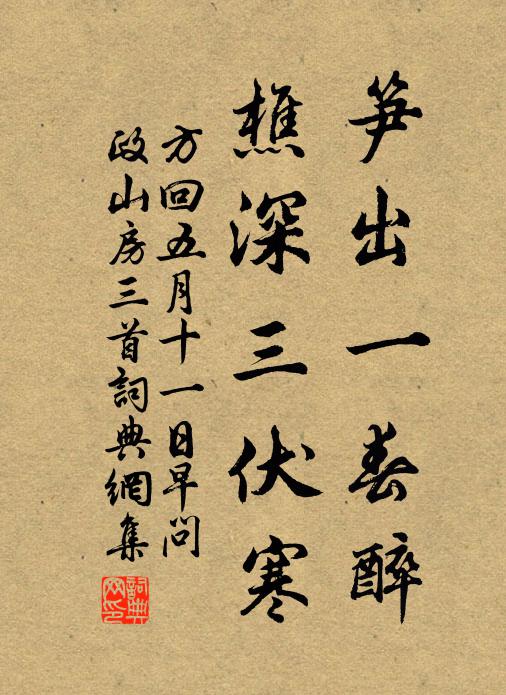 笋出一春醉
樵深三伏寒
方回五月十一日早問
政山房三首詞典網集
詞典
网印